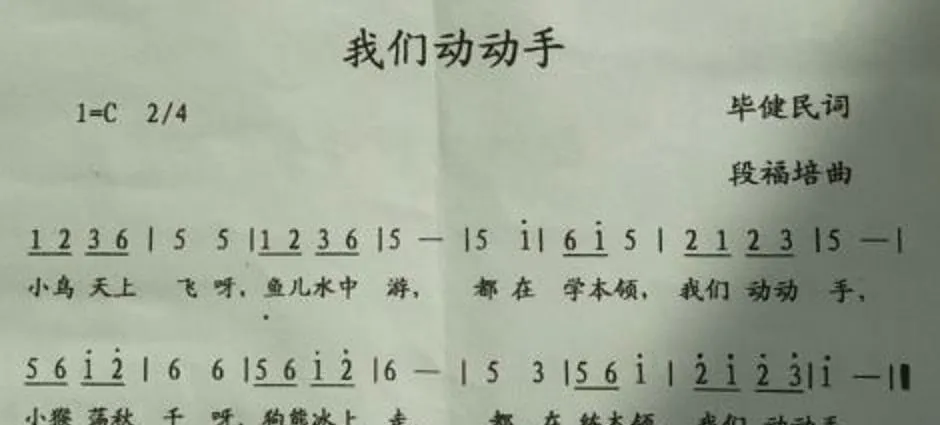 我们动动手
1=C 2/4
毕健民词
段福培曲
1 2 3 6 | 5 5 | 1 2 3 6 | 5 — | 5 i̇ | 6 i̇ 5 | 2 1 2 3 | 5 — |
小鸟 天上 飞 呀, 鱼儿水中 游, 都 在 学本领, 我们 动动 手,
5 6 i̇ 2̇ | 6 6 | 5 6 i̇ 2̇ | 6 — | 5 3 | 5 6 i̇ | 2̇ i̇ 2̇ 3̇ | i̇ — ‖
小猴 荡秋 千 呀, 狗熊冰上 走, 都 在 练本领, 我们 动动手